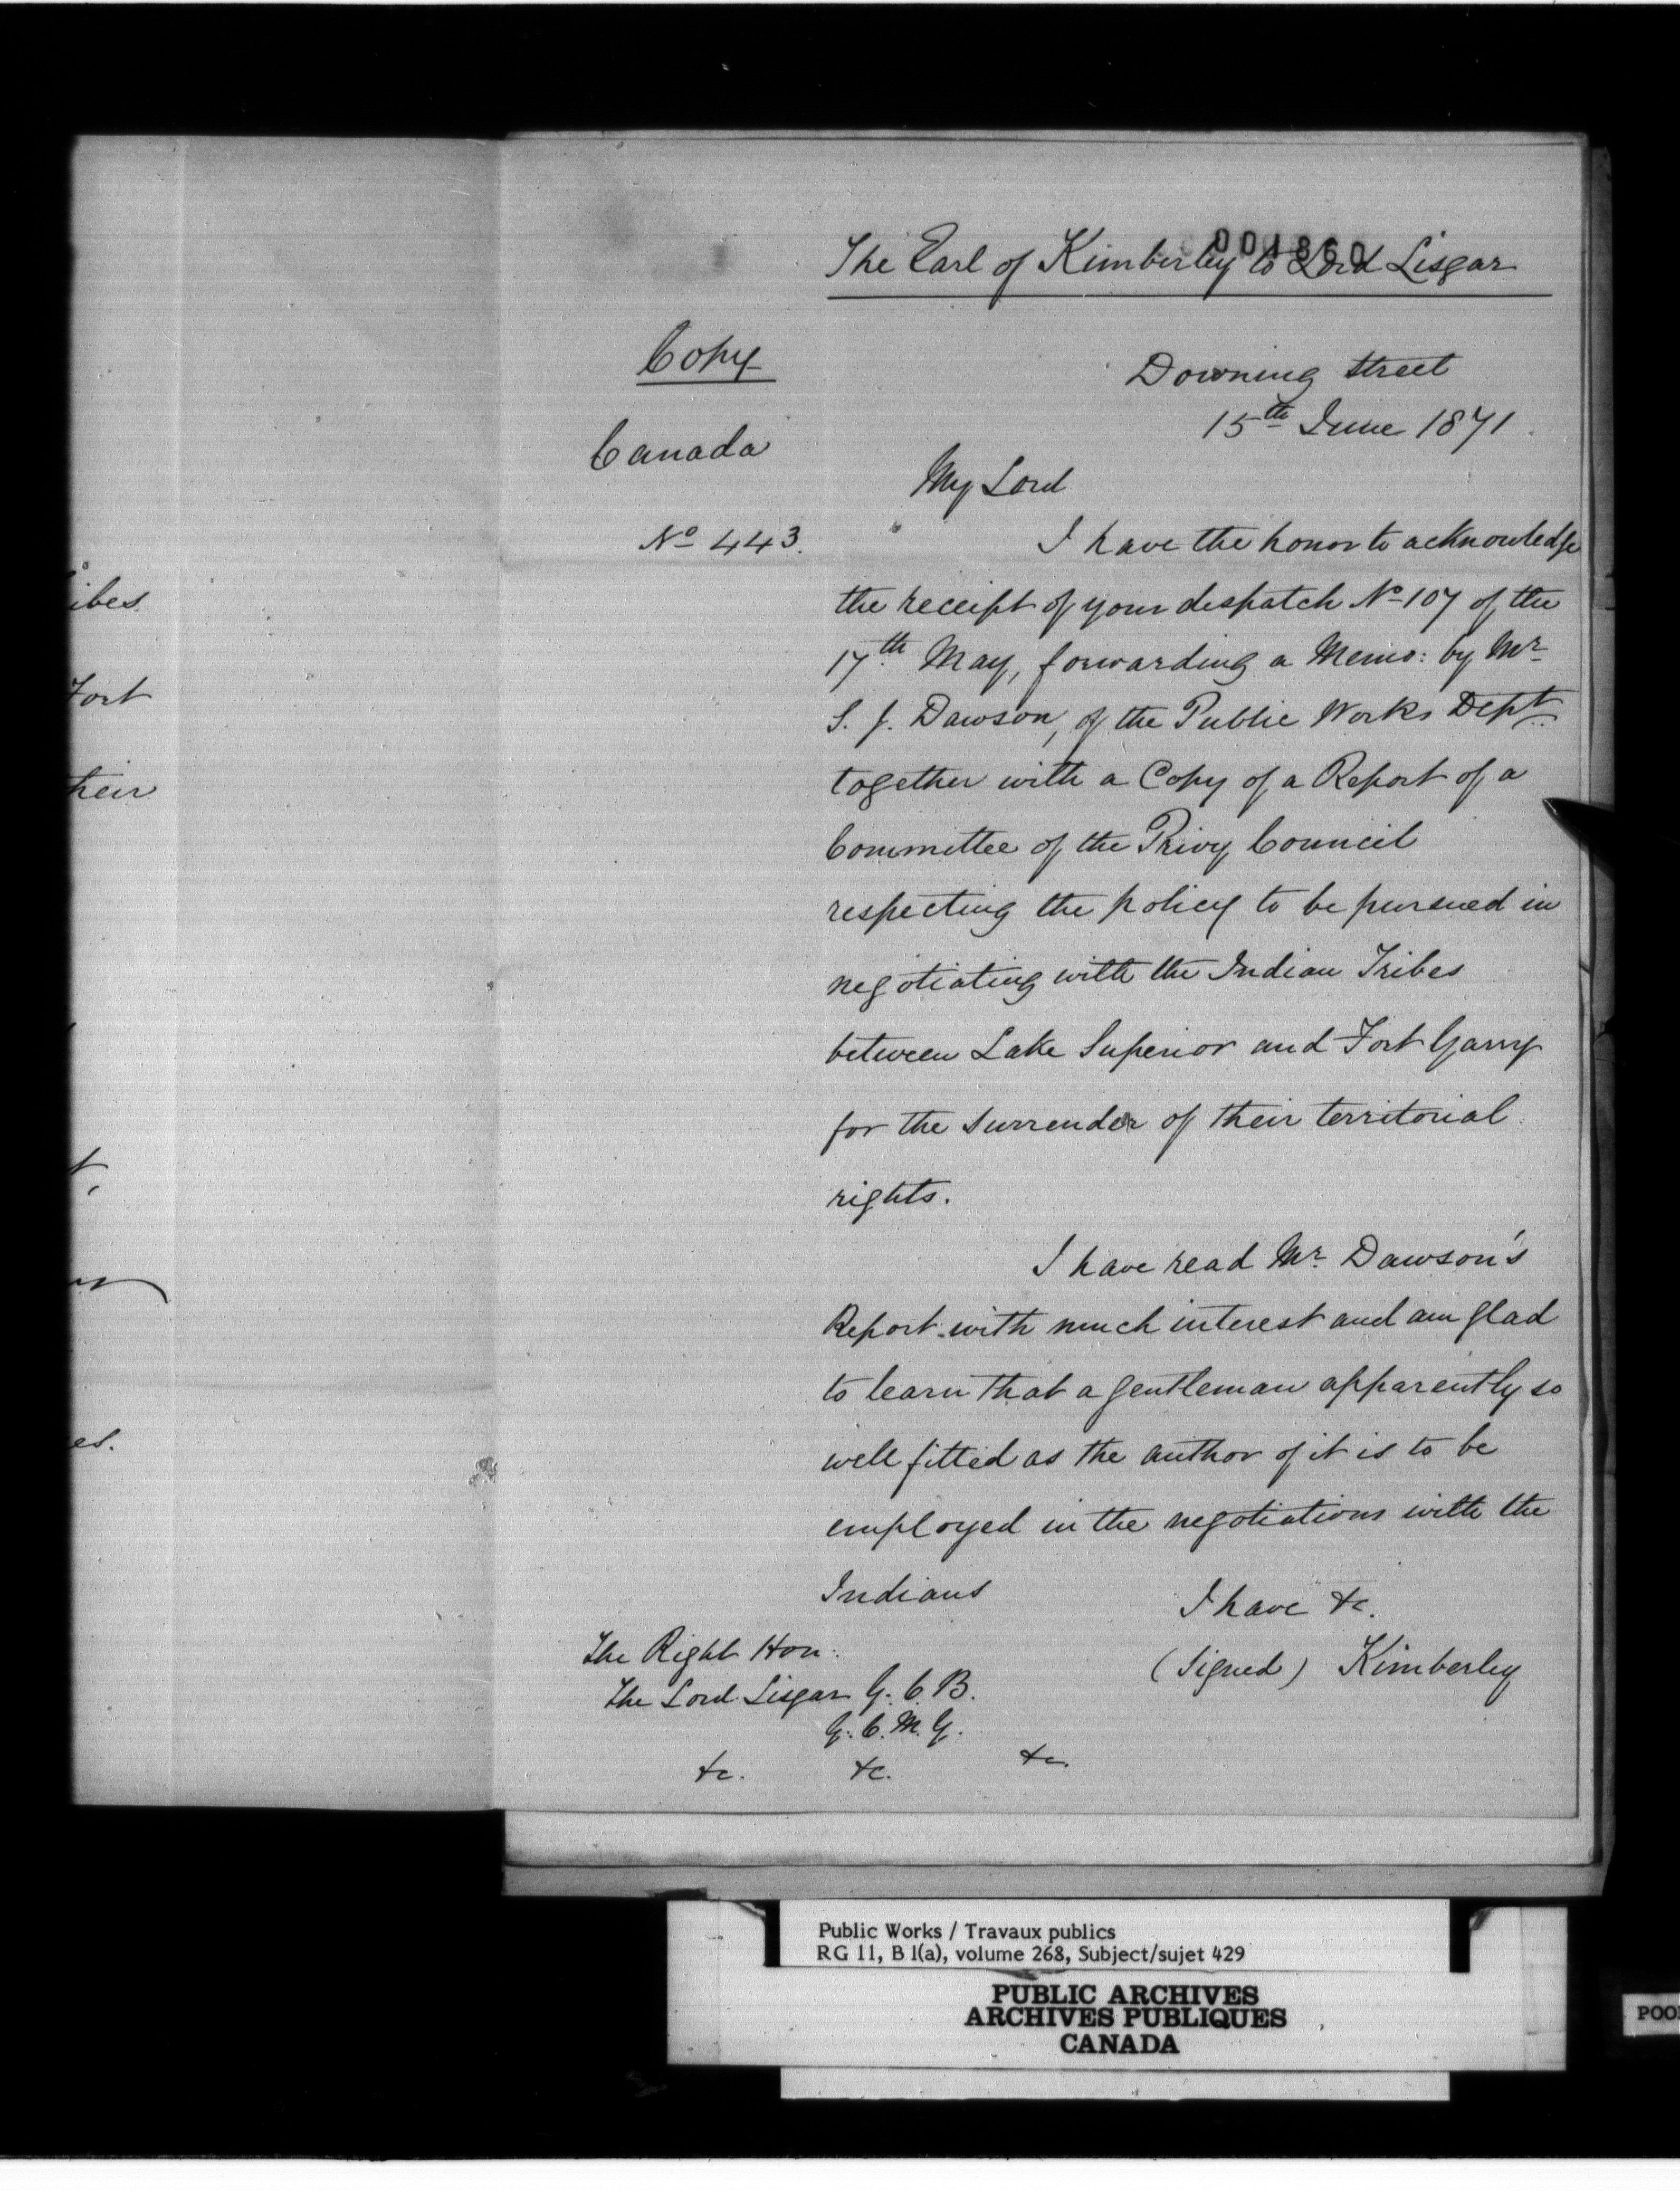 The Earl of Kimberley to Lord Lisgar
Copy
Downing Street
15th June 1871
Canada
My Lord
No 443.
I have the honor to acknowledge
the receipt of your despatch No 107 of the
17th May, forwarding a Memo: by Mr
S. J. Dawson, of the Public Works Dept
together with a Copy of a Report of a
Committee of the Privy Council
respecting the policy to be pursued in
negotiating with the Indian Tribes
between Lake Superior and Fort Garry
for the surrender of their territorial
rights.
I have read Mr Dawson's
Report with much interest and am glad
to learn that a gentleman apparently so
well fitted as the author of it is to be
employed in the negotiations with the
Indians
I have &c.
(Signed) Kimberley
The Right Hon:
The Lord Lisgar G. C. B.
G. C. M. G.
&c. &c. &c.
ibes
Fort
heir
es.
Public Works / Travaux publics
RG 11, B 1(a), volume 268, Subject/sujet 429
PUBLIC ARCHIVES
ARCHIVES PUBLIQUES
CANADA
POO